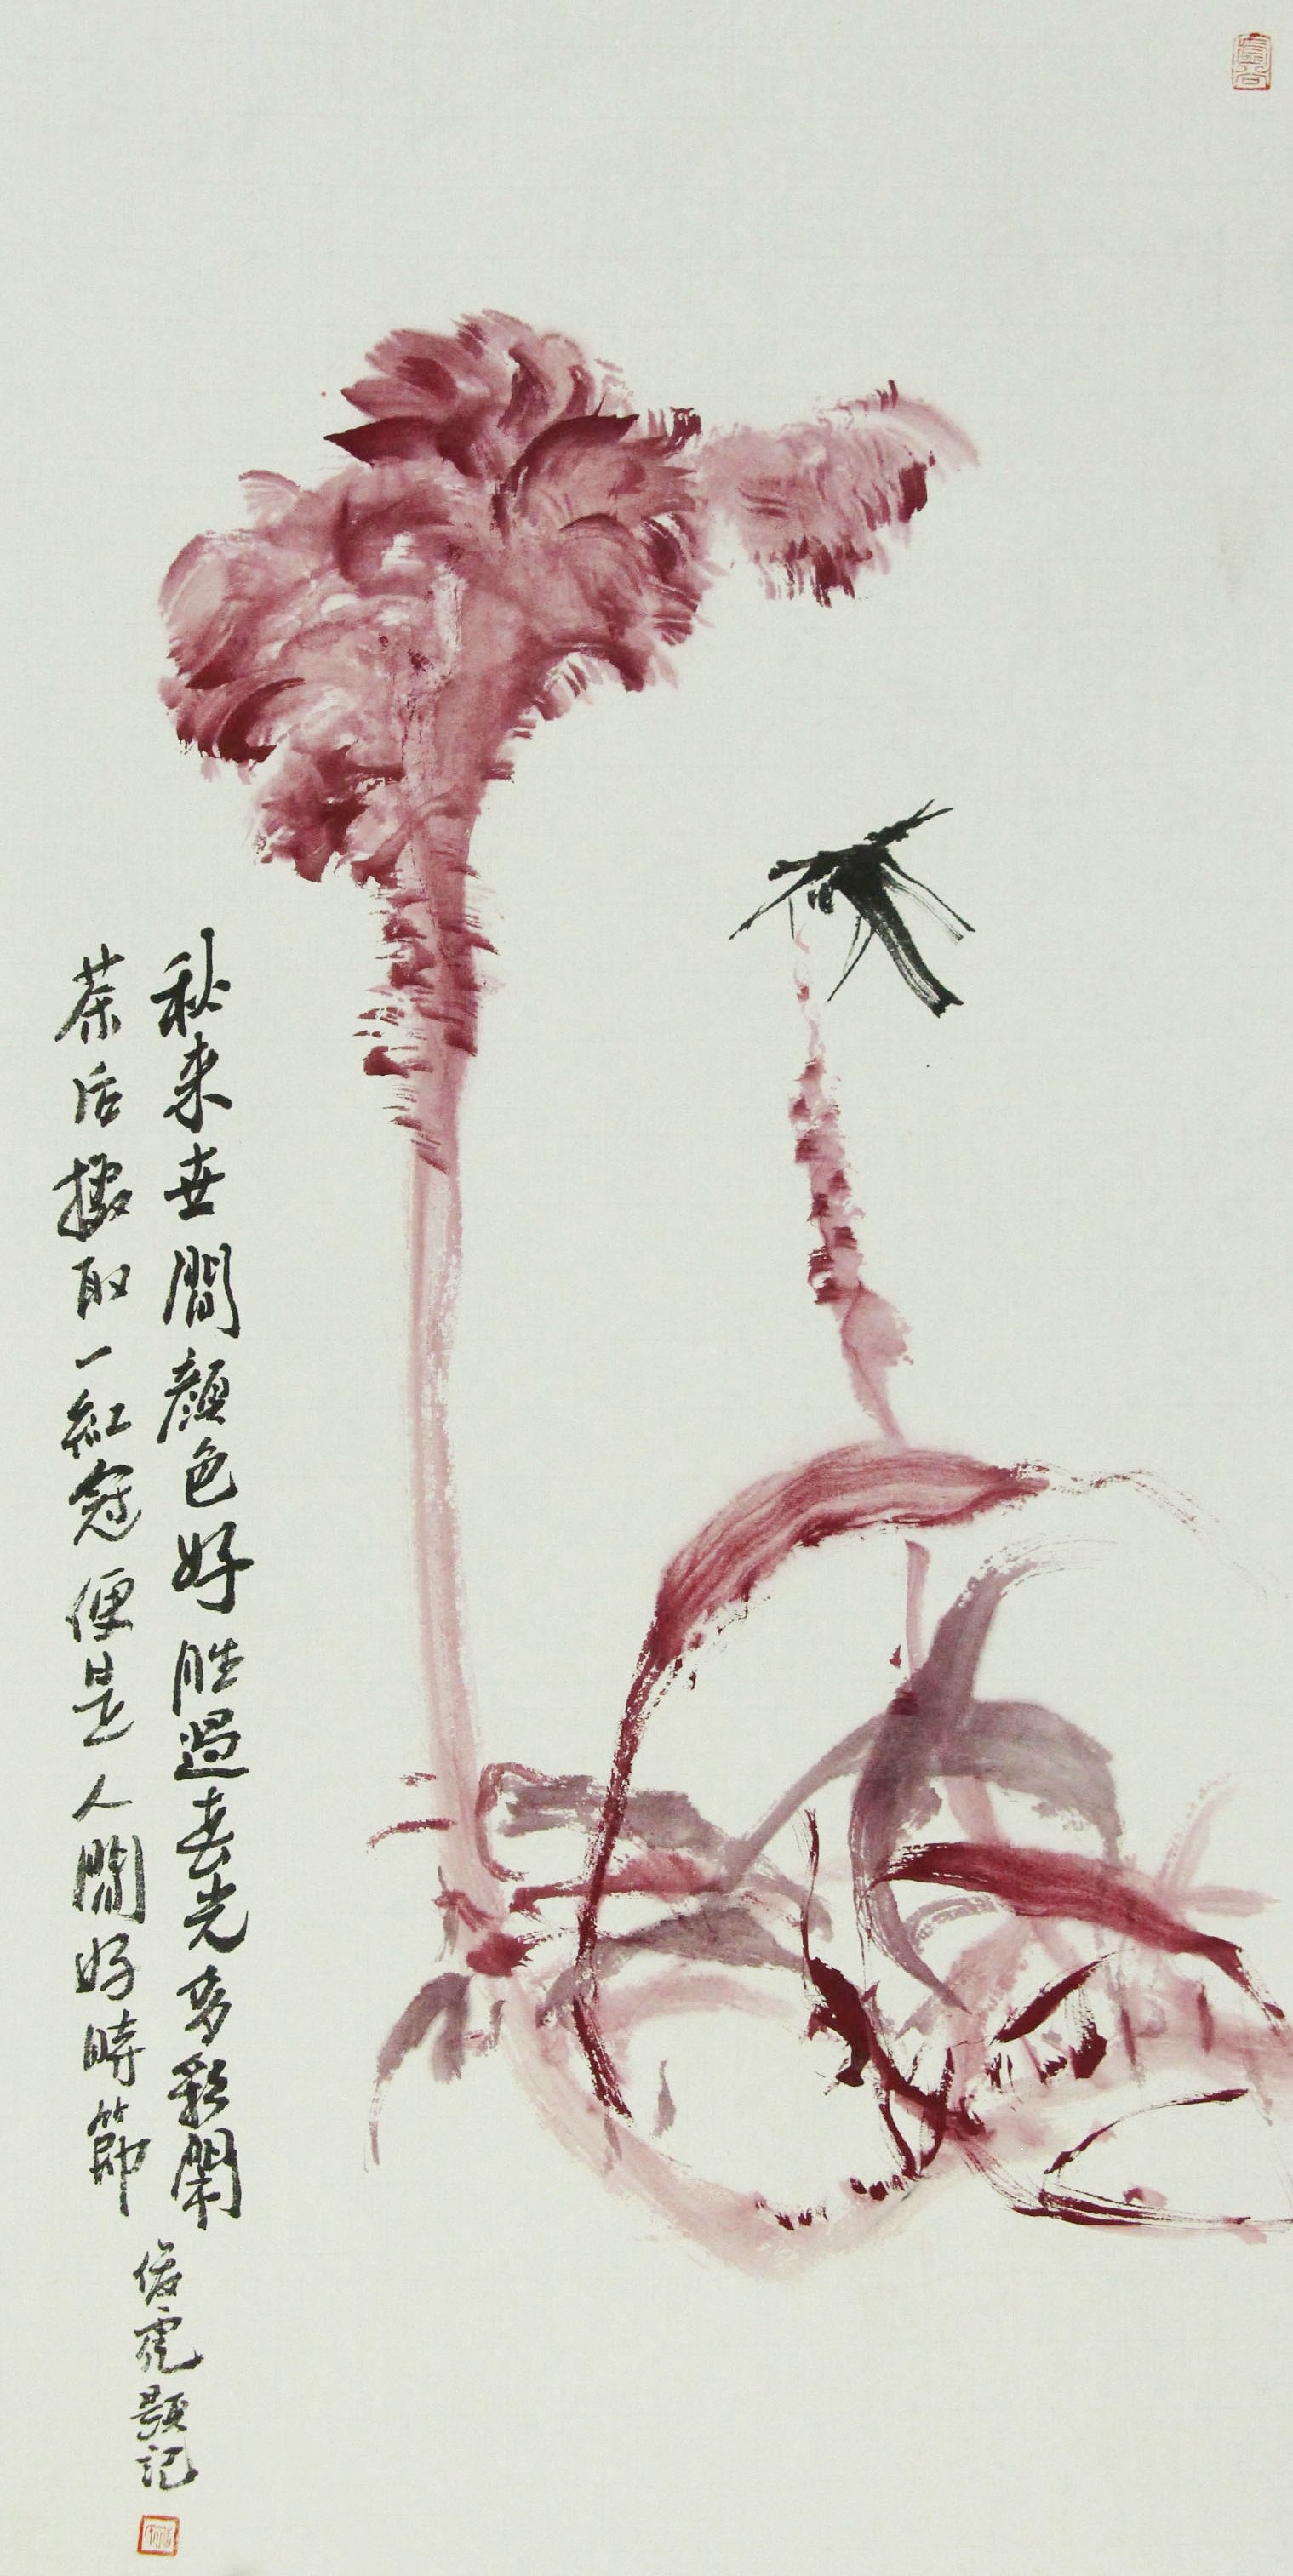 秋来世間顏色好胜過春光多彩開
茶后擷取一紅冠便是人間好時節
俊虎題記